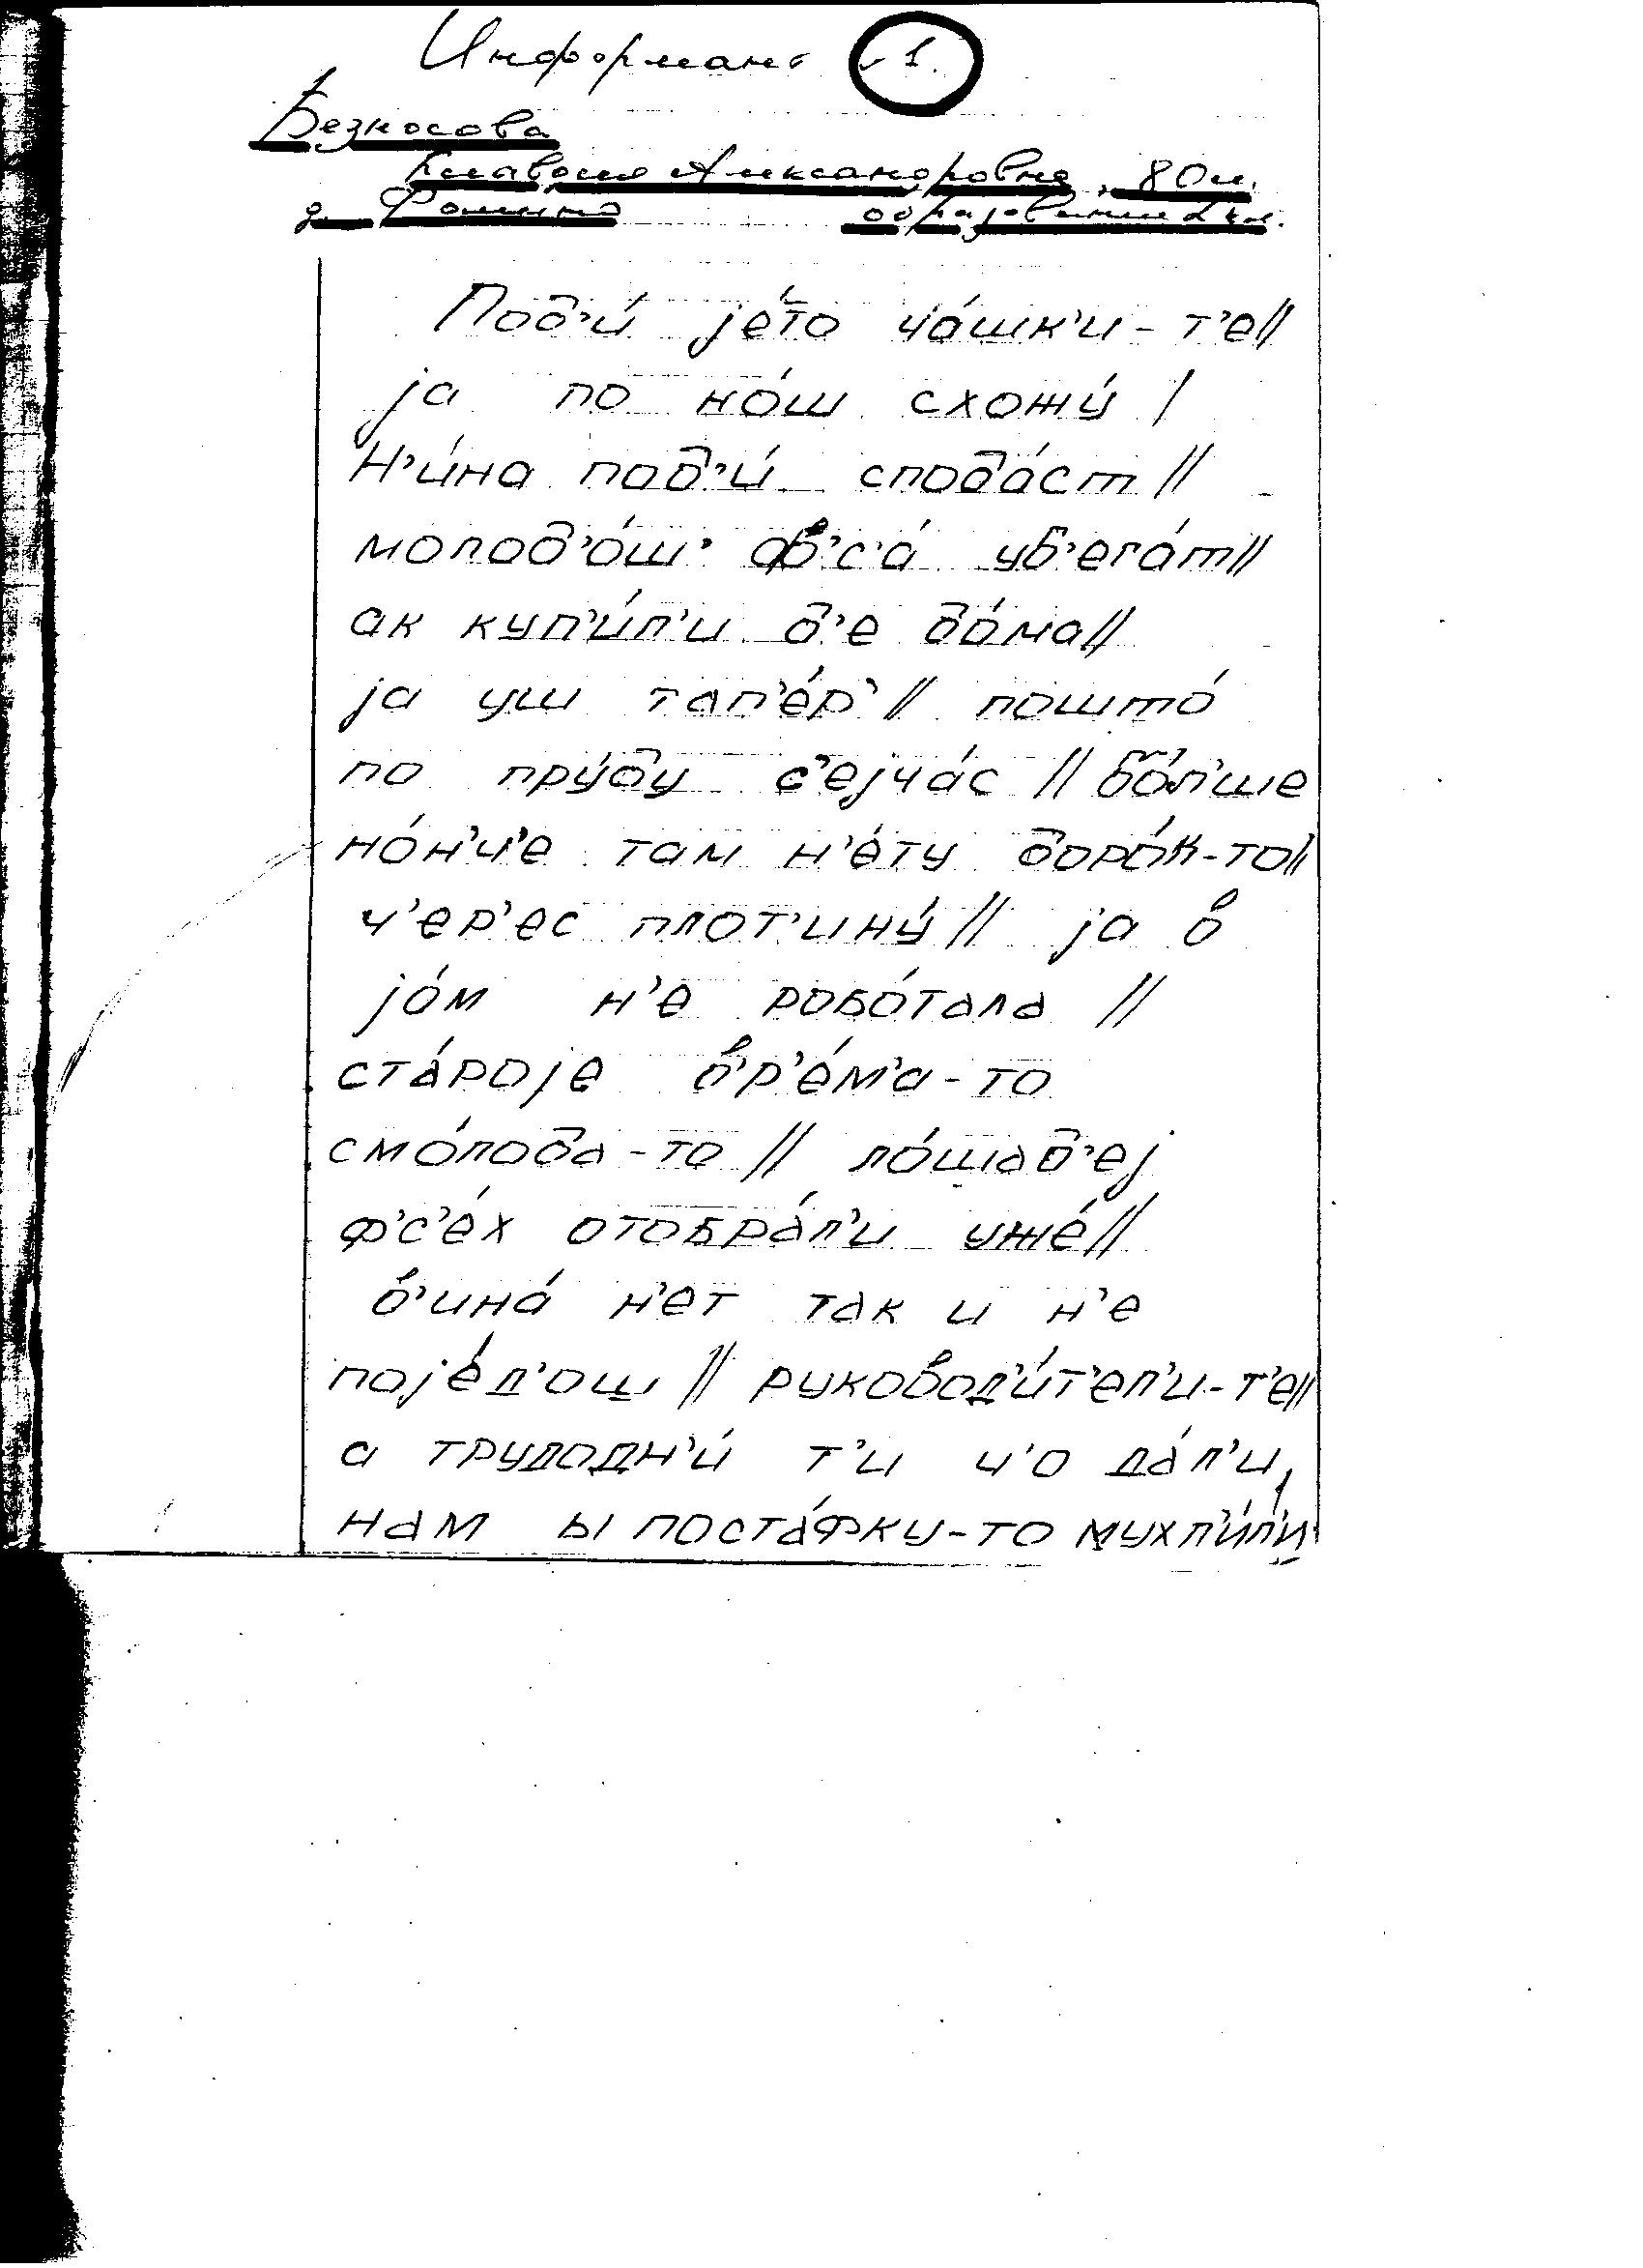 Информант 1.
Безносова
Клавдия Александровна, 80 л.
д. Фомино образование 2 кл.
Под'и́ jе́то ча́шк'и - т'е //
jа по но́ш схожу́ /
Н'и́на под'и́ спода́ст //
молод'о́ш' ф'с'а́ уб'ега́т //
ак куп'и́л'и д'е до́ма //
jа уш тап'е́р' // пошто́
по пру́ду с'еjча́с // бо́л'ше
но́н'ч'е там н'е́ту доро́к-то //
ч'ер'ес плот'ину́ // jа в
jо́м н'е робо́тала //
ста́роjе в'р'е́м'а - то
смо́лода - то // ло́шад'еj
ф'с'е́х отобра́л'и уже́ //
в'ина́ н'ет так и н'е
поjе́д'ош // руковод'и́т'ел'и-т'е //
а трудодн'и́ т'и ч'о да́л'и,
нам ы поста́фку-то мухл'и́л'и